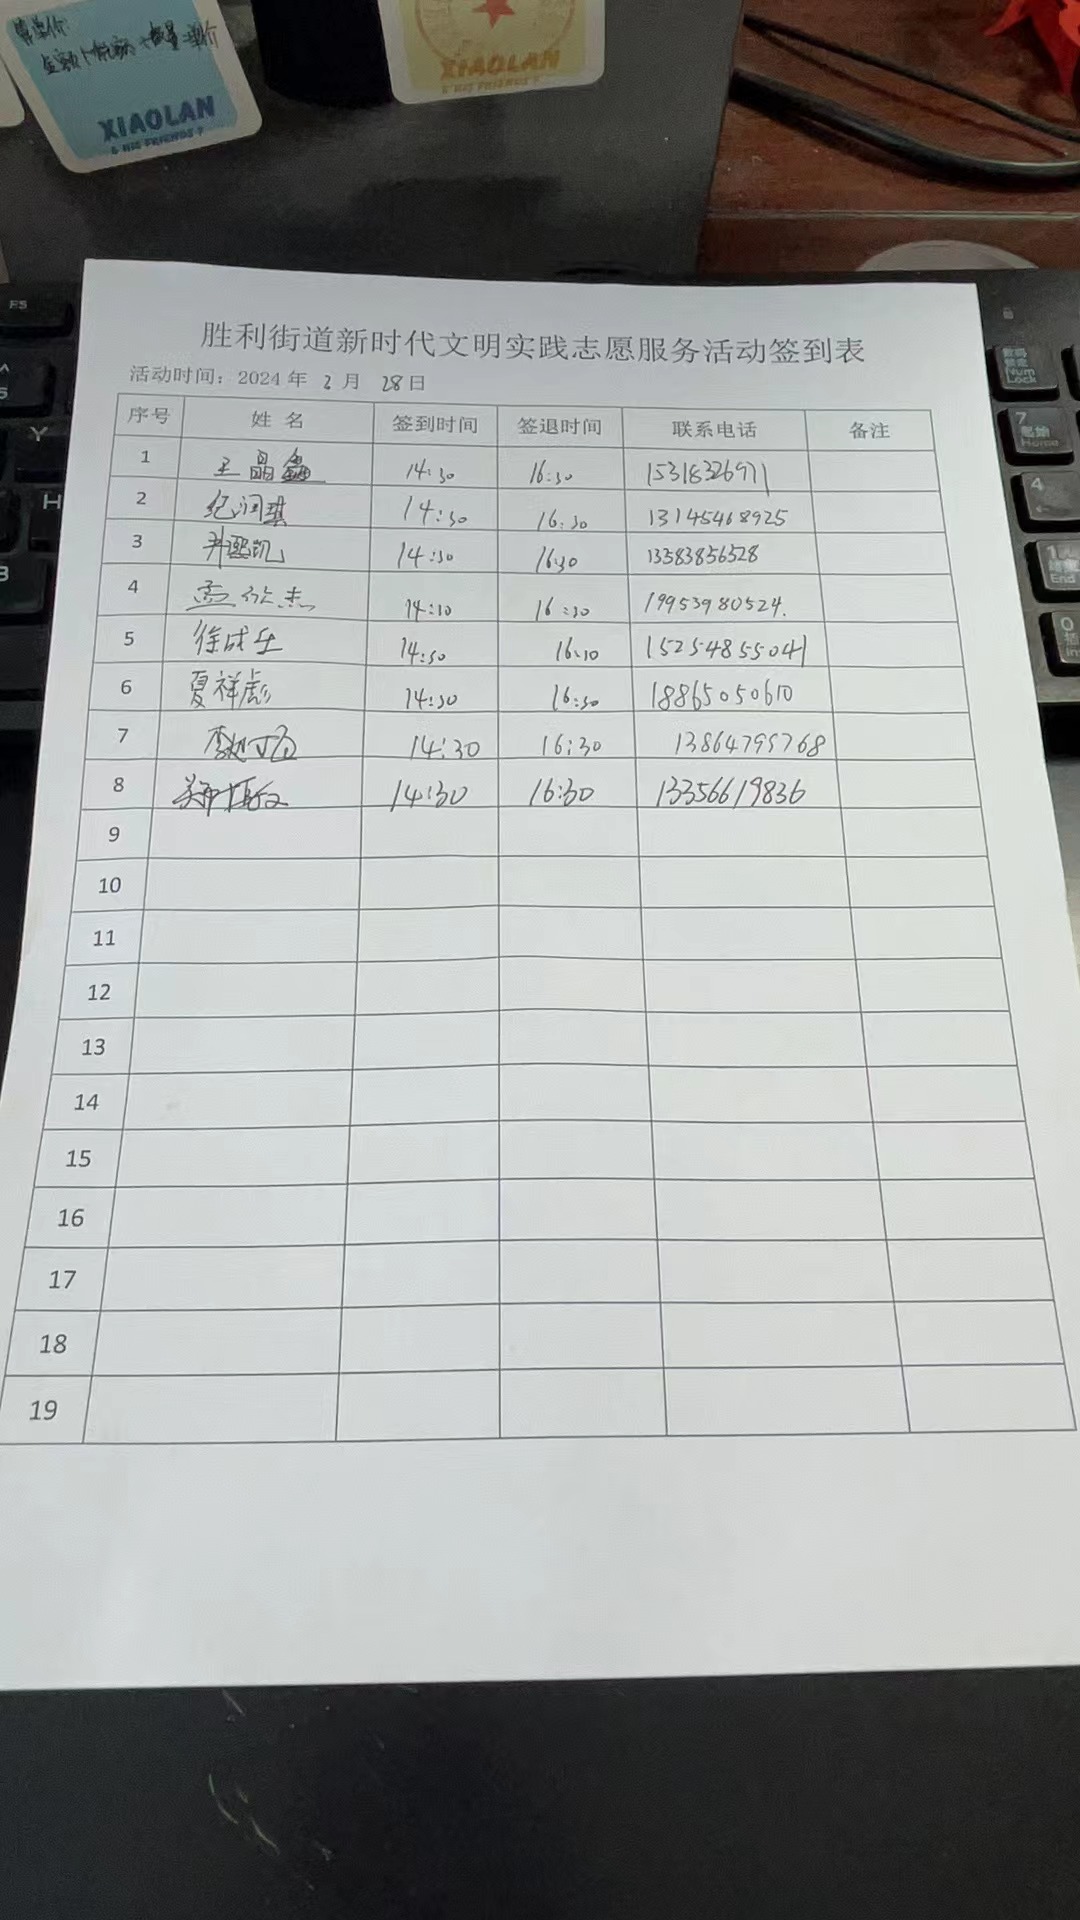 XIAOLAN
& HIS FRIENDS ?
XIAOLAN
& HIS FRIENDS ?
F5
Y
H
Num Lock
7 Home
4
1 End
0
胜利街道新时代文明实践志愿服务活动签到表
活动时间：2024 年 2 月 28日
序号 姓 名 签到时间 签退时间 联系电话 备注
1 王晶鑫 14:30 16:30 15318326971
2 纪润琪 14:30 16:30 13145468925
3 尹熙凯 14:30 16:30 13583856528
4 孟欣杰 14:30 16:30 19953980524.
5 徐成生 14:30 16:30 15254855041
6 夏祥彪 14:30 16:30 18865050610
7 14:30 16:30 13864795768
8 14:30 16:30 13356619836
9
10
11
12
13
14
15
16
17
18
19